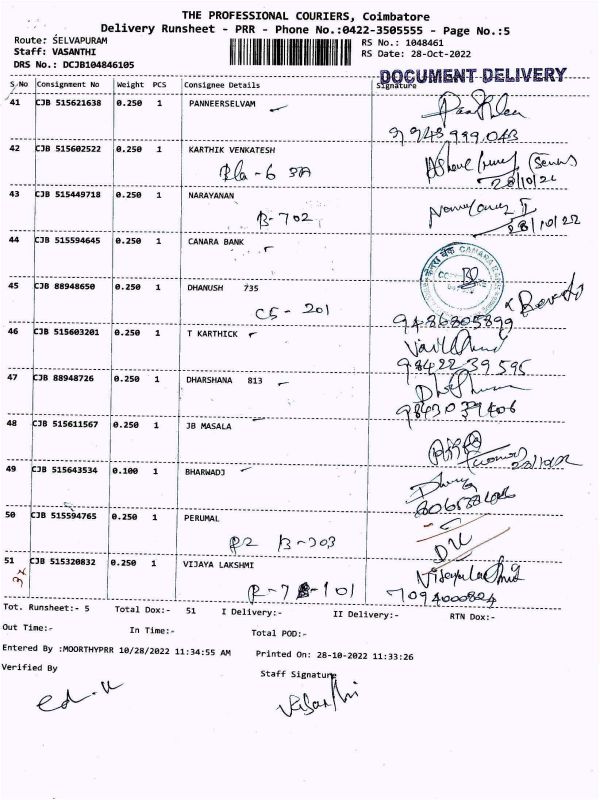 THE PROFESSIONAL COURIERS, Coimbatore
Delivery Runsheet - PRR - Phone No.:0422-3505555 - Page No.:5
Route: SELVAPURAM
RS No.: 1048461
Staff: VASANTHI
RS Date: 28-Oct-2022
DRS No.: DCJB104846105
DOCUMENT DELIVERY
S.No Consignment No Weight PCS Consignee Details Signature
41 CJB 515621638 0.250 1 PANNEERSELVAM
42 CJB 515602522 0.250 1 KARTHIK VENKATESH
28/10/22
43 CJB 515449718 0.250 1 NARAYANAN
B-702
28/10/22
44 CJB 515594645 0.250 1 CANARA BANK
45 CJB 88948650 0.250 1 DHANUSH 735
C5-201
9486805899
46 CJB 515603201 0.250 1 T KARTHICK
98422 39 595
47 CJB 88948726 0.250 1 DHARSHANA 813
48 CJB 515611567 0.250 1 JB MASALA
49 CJB 515643534 0.100 1 BHARWADJ
50 CJB 515594765 0.250 1 PERUMAL
51 CJB 515320832 0.250 1 VIJAYA LAKSHMI
Vijayalakshmi
7094000824
Tot. Runsheet:- 5 Total Dox:- 51 I Delivery:- II Delivery:- RTN Dox:-
Out Time:- In Time:- Total POD:-
Entered By :MOORTHYPRR 10/28/2022 11:34:55 AM Printed On: 28-10-2022 11:33:26
Verified By
Staff Signature
Vasanthi